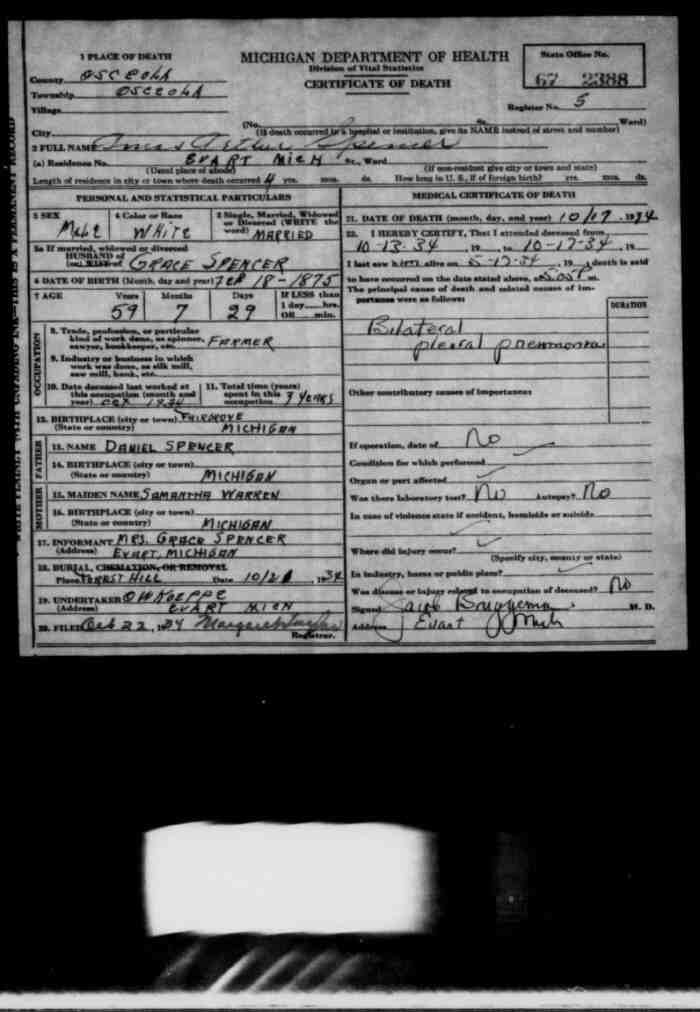 1 PLACE OF DEATH
County OSCEOLA
Township OSCEOLA
Village
City
MICHIGAN DEPARTMENT OF HEALTH
Division of Vital Statistics
CERTIFICATE OF DEATH
State Office No.
67 2388
Register No. 5
(No. St. Ward)
(If death occurred in a hospital or institution, give its NAME instead of street and number)
2 FULL NAME Arthur Spencer
(a) Residence No. EVART MICH St., Ward
(Usual place of abode) (If non-resident give city or town and state)
Length of residence in city or town where death occurred 4 yrs. mos. ds. How long in U. S., if of foreign birth? yrs. mos. ds.
PERSONAL AND STATISTICAL PARTICULARS
3 SEX MALE
4 Color or Race WHITE
5 Single, Married, Widowed or Divorced (WRITE the word) MARRIED
5a If married, widowed or divorced
HUSBAND of
(or) WIFE of GRACE SPENCER
6 DATE OF BIRTH (Month, day and year) FEB 18-1875
7 AGE Years Months Days If LESS than
59 7 29 1 day hrs.
OR min.
OCCUPATION
8. Trade, profession, or particular
kind of work done, as spinner, FARMER
sawyer, bookkeeper, etc.
9. Industry or business in which
work was done, as silk mill,
saw mill, bank, etc.
10. Date deceased last worked at
this occupation (month and
year) OCT 1934
11. Total time (years)
spent in this
occupation 3 YEARS
12. BIRTHPLACE (city or town) FAIRGROVE
(State or country) MICHIGAN
FATHER
13. NAME DANIEL SPENCER
14. BIRTHPLACE (city or town)
(State or country) MICHIGAN
MOTHER
15. MAIDEN NAME SAMANTHA WARREN
16. BIRTHPLACE (city or town)
(State or country) MICHIGAN
17. INFORMANT MRS. GRACE SPENCER
(Address) EVART, MICHIGAN
18. BURIAL, CREMATION, OR REMOVAL
Place FOREST HILL Date 10/21, 1934
19. UNDERTAKER KOEPPE
(Address) EVART MICH
20. FILED Oct 22, 1934 Margaret
Registrar.
MEDICAL CERTIFICATE OF DEATH
21. DATE OF DEATH (month, day, and year) 10/17 1934
22. I HEREBY CERTIFY, That I attended deceased from
10-13-34, 19 to 10-17-34, 19
I last saw him alive on 5-17-34, 19 death is said
to have occurred on the date stated above, 505P m.
The principal cause of death and related causes of im-
portance were as follows:
DURATION
Bilateral
pleural pneumonia
Other contributory causes of importance:
If operation, date of No
Condition for which performed
Organ or part affected
Was there laboratory test? No Autopsy? No
In case of violence state if accident, homicide or suicide
Where did injury occur?
(Specify city, county or state)
In industry, home or public place?
Was disease or injury related to occupation of deceased? No
Signed Jacob Bruggema M. D.
Address Evart Mich